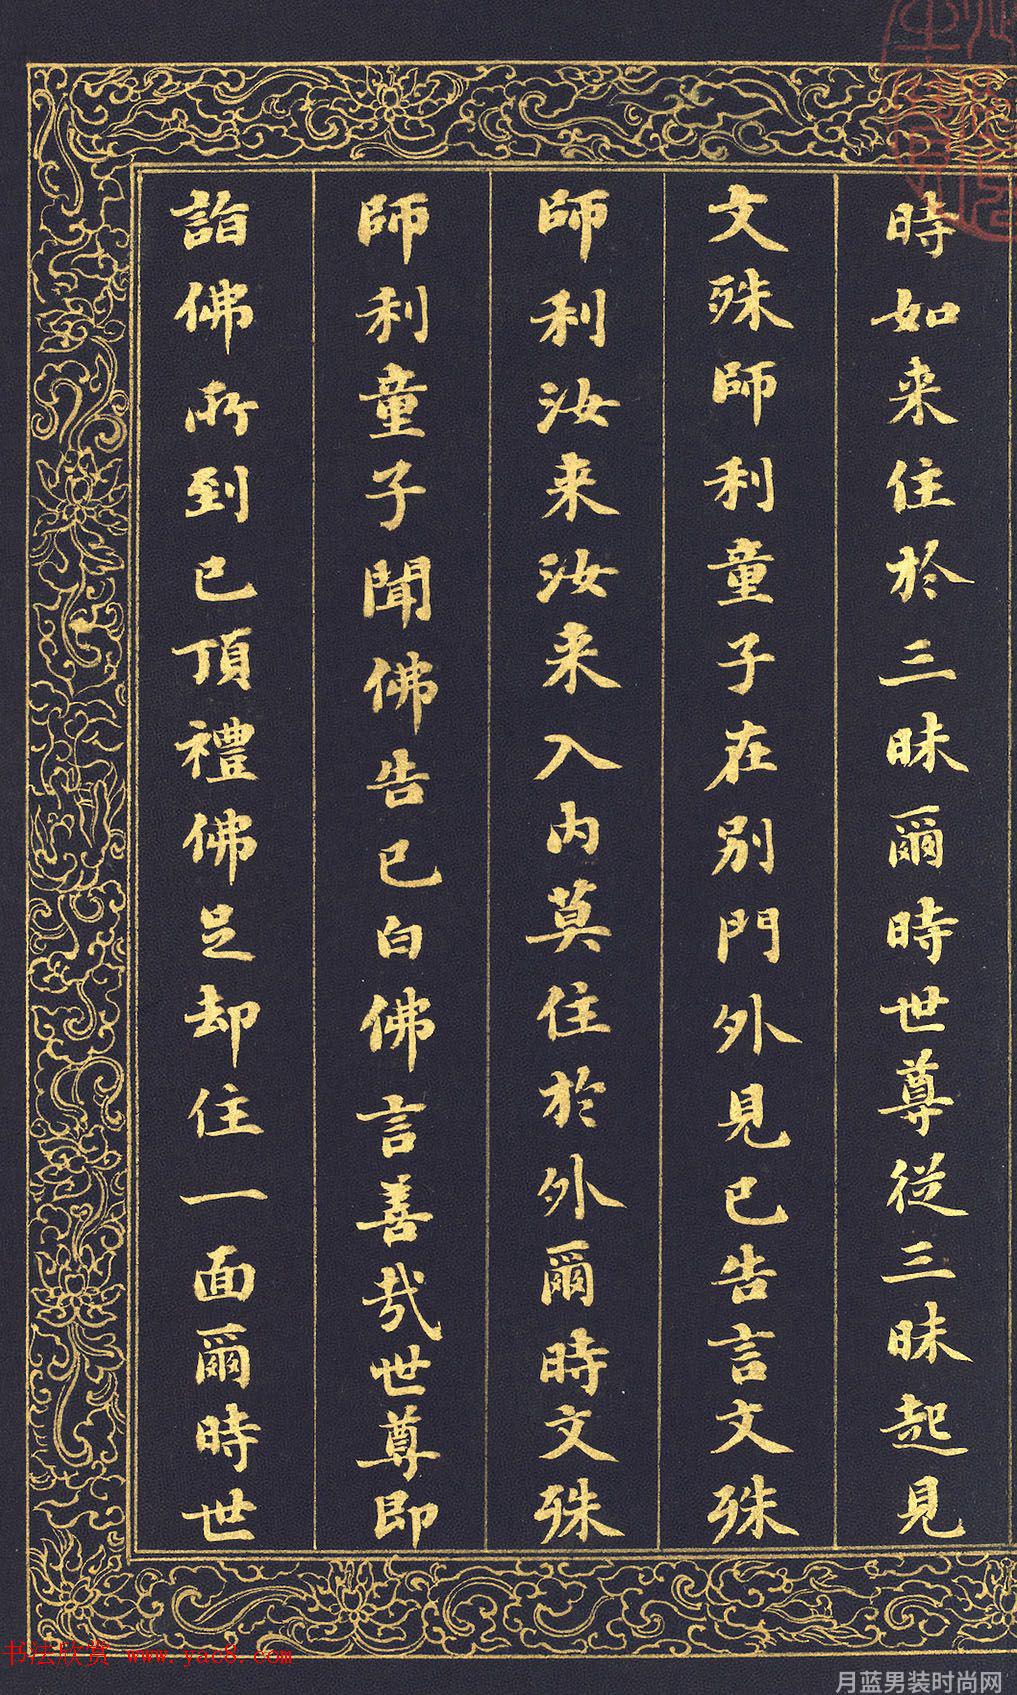 時如来住於三昧爾時世尊從三昧起見
文殊師利童子在別門外見已告言文殊
師利汝来汝来入内莫住於外爾時文殊
師利童子聞佛告已白佛言善哉世尊即
詣佛所到已頂禮佛足却住一面爾時世
书法欣赏 www.yac8.com
月蓝男装时尚网